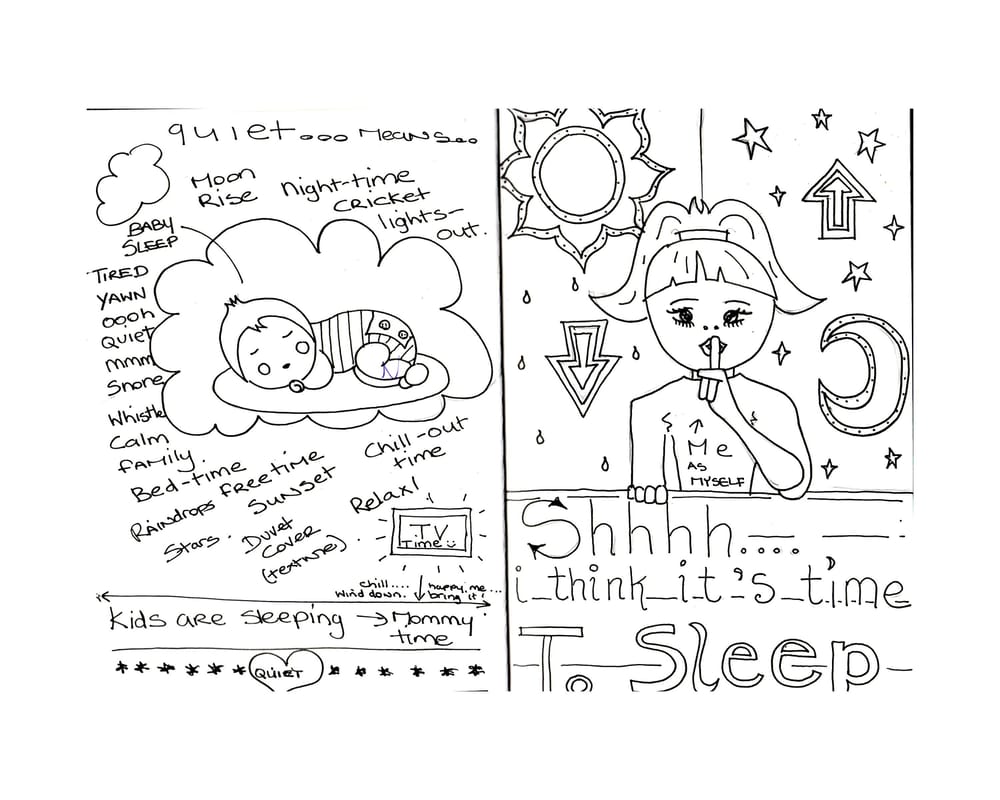 quiet... Means...
Moon
Rise
Night-time
CRICKET
lights-
out.
BABY
SLEEP
TIRED
YAWN
oooh
Quiet
mmm
Snore
Whistle
Calm
FAMILY.
Bed-time
Raindrops
FREE time
SUNSET
Stars.
Duvet
Cover
(texture).
Chill-out
time
Relax!
TV
Time
chill....
wind down.
happy me...
bring it!
Kids are sleeping → Mommy
time
QUIET
Me
AS
MYSELF
Shhhh....
i_think_it's_time
To Sleep